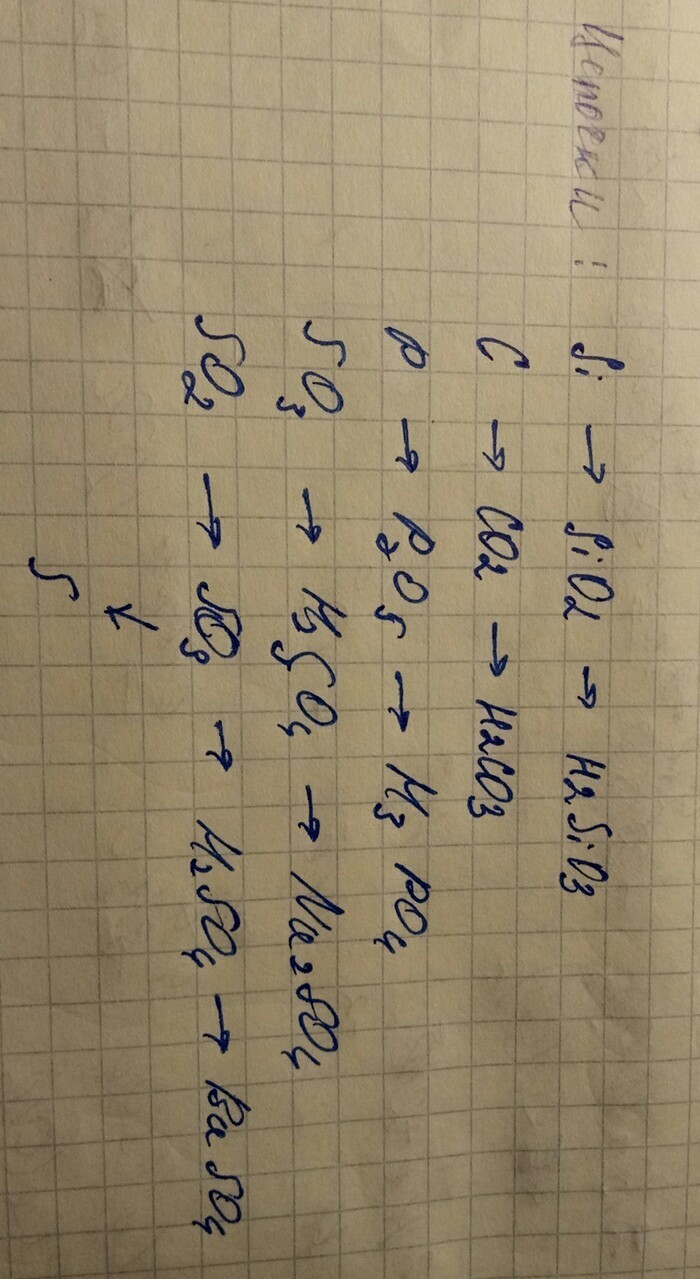 Цепочки: Si → SiO₂ → H₂SiO₃
C → CO₂ → H₂CO₃
P → P₂O₅ → H₃PO₄
SO₃ → H₂SO₄ → Na₂SO₄
SO₂ → SO₃ → H₂SO₄ → BaSO₄
↓
S